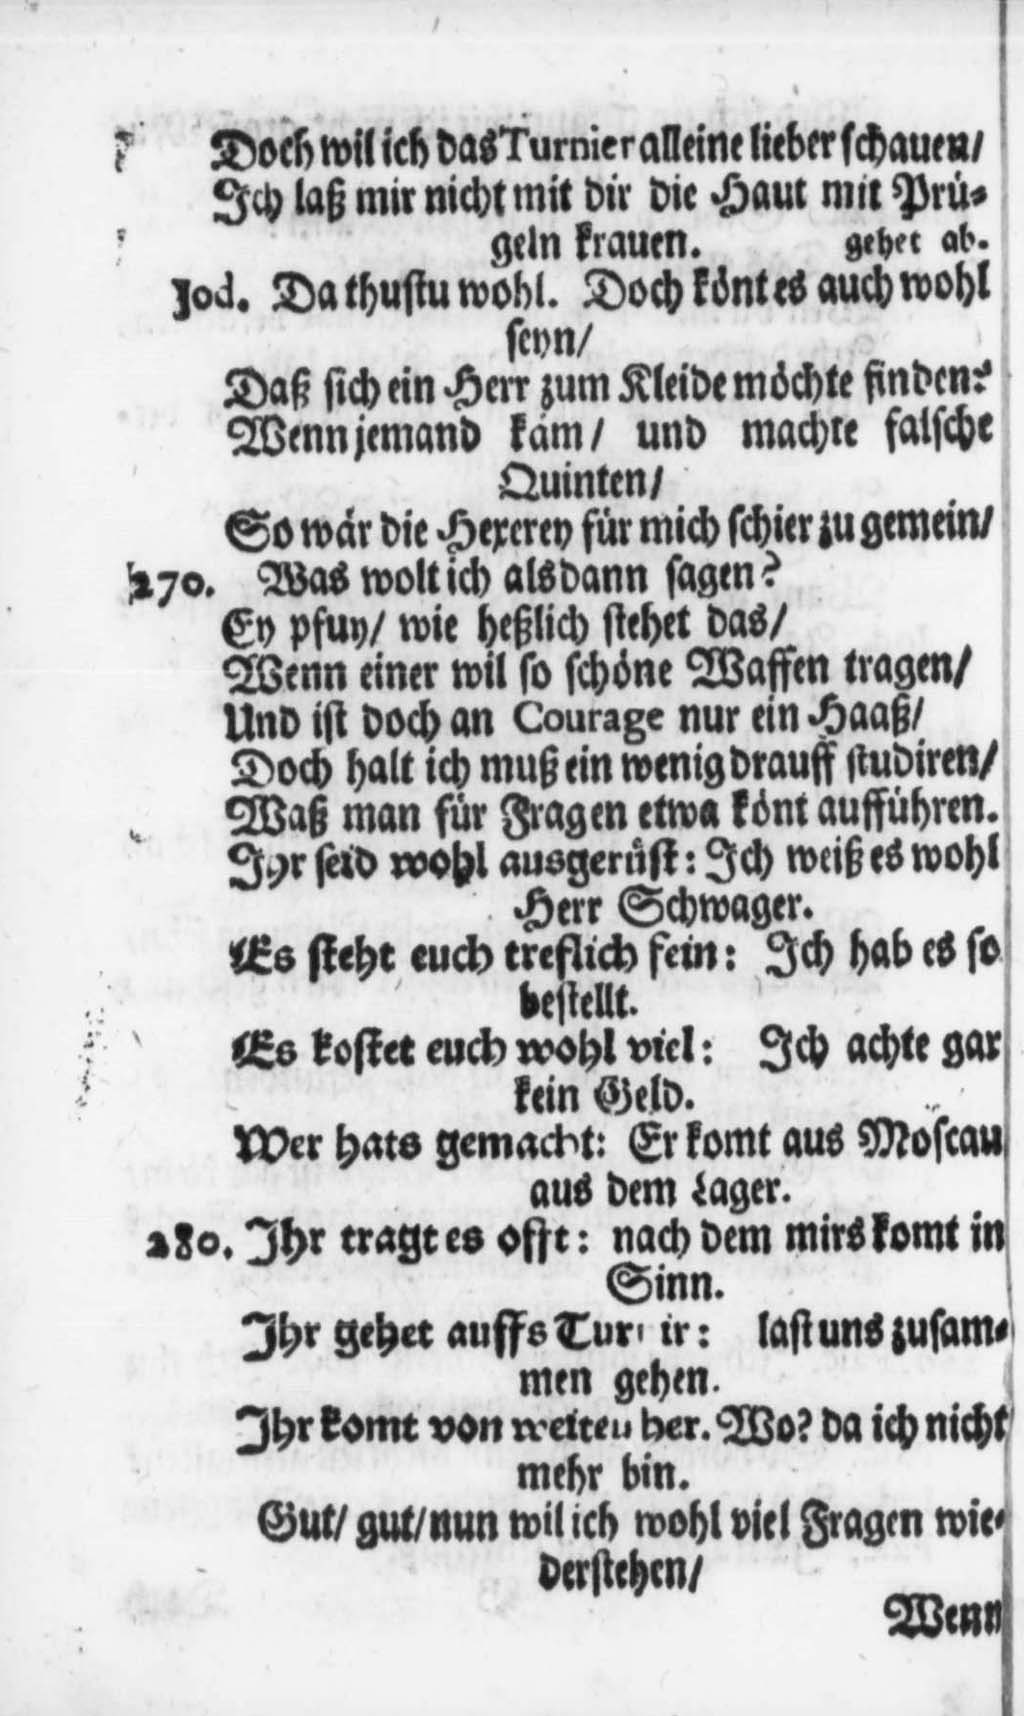 Doch wil ich das Turnier alleine lieber schauen/
Ich laß mir nicht mit dir die Haut mit Prü-
geln krauen. gehet ab.
Jod. Da thustu wohl. Doch könt es auch wohl
seyn/
Daß sich ein Herr zum Kleide möchte finden:
Wenn jemand käm/ und machte falsche
Quinten/
So wär die Hexerey für mich schier zu gemein/
270. Was wolt ich alsdann sagen?
Ey pfuy/ wie heßlich stehet das/
Wenn einer wil so schöne Waffen tragen/
Und ist doch an Courage nur ein Haaß/
Doch halt ich muß ein wenig drauff studiren/
Waß man für Fragen etwa könt aufführen.
Ihr seid wohl ausgerüst: Ich weiß es wohl
Herr Schwager.
Es steht euch treflich fein: Ich hab es so
bestellt.
Es kostet euch wohl viel: Ich achte gar
kein Geld.
Wer hats gemacht: Er komt aus Moscau
aus dem Lager.
280. Ihr tragt es offt: nach dem mirs komt in
Sinn.
Ihr gehet auffs Turnir: last uns zusam-
men gehen.
Ihr komt von weiten her. Wo? da ich nicht
mehr bin.
Gut/ gut/ nun wil ich wohl viel Fragen wie-
derstehen/
Wenn